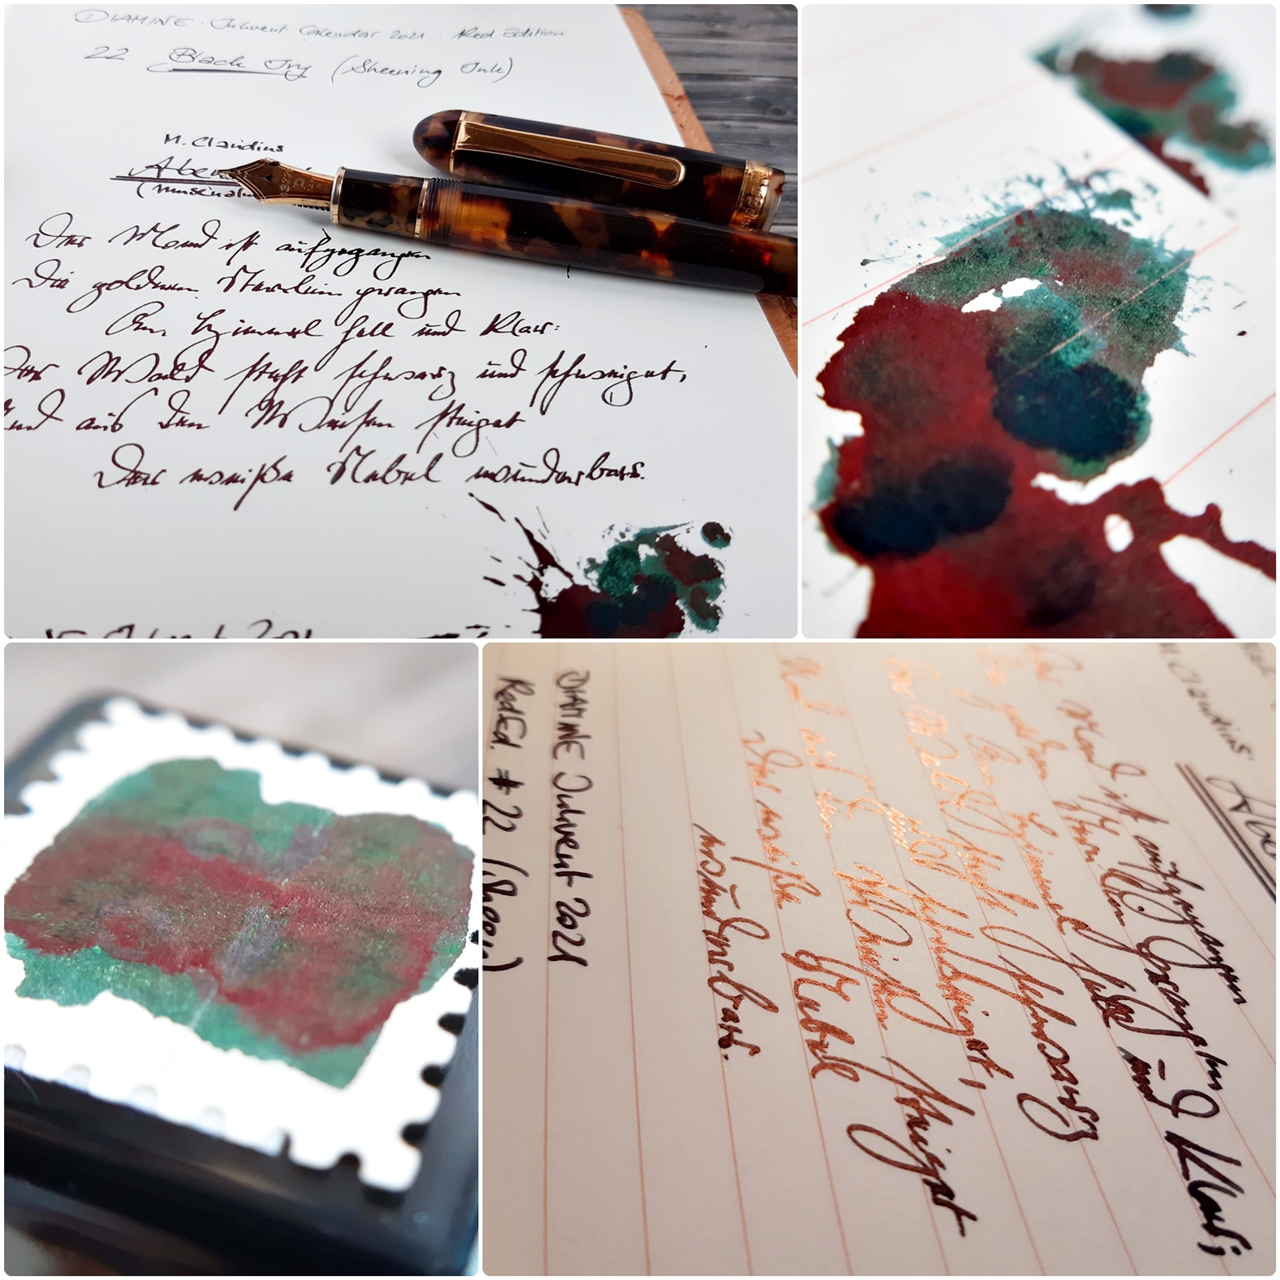 DIAMINE · Inkvent Calendar 2021 · Red Edition
22 Black Ivy (Sheening Ink)
M. Claudius
Aben
(
Der Mond ist aufgegangen
Die goldnen Sternlein prangen
Am Himmel hell und klar:
Der Wald steht schwarz und schweiget,
Und aus den Wiesen steiget
Der weiße Nebel wunderbar.
Inkvent 2021
Claudius.
Der Mond ist aufgegangen
Die goldnen Sternlein prangen
Am Himmel hell und klar;
Der Wald steht schwarz und
schweiget,
Und aus den Wiesen steiget
Der weiße Nebel
wunderbar.
DIAMINE Inkvent 2021
Red Ed. # 22 (Sheen)